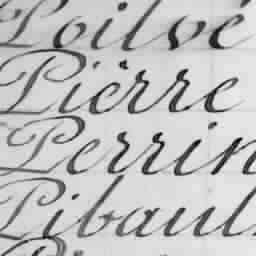 Poilvé
Piërre
Perrin
Pibaul